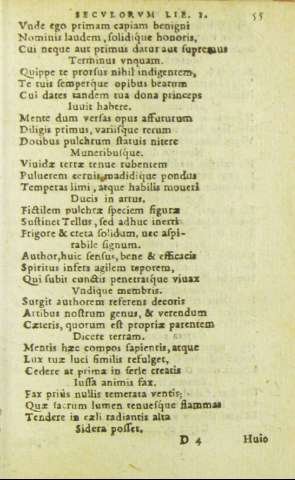 SECVLORVM LIB. I. 55
Vnde ego primam capiam benigni
Nominis laudem, solidique honoris,
Cui neque aut primus datur aut supremus
Terminus vnquam.
Quippe te prorsus nihil indigentem,
Te tuis semperque opibus beatum
Cui dates tandem tua dona princeps
Iuuit habere.
Mente dum versas opus affuturum
Diligis primus, variisque rerum
Dotibus pulchrum statuis nitere
Muneribusque.
Viuidæ terræ tenue rubentem
Puluerem cernis, madidique pondus
Temperas limi, atque habilis moueri
Ducis in artus.
Fictilem pulchræ speciem figuræ
Sustinet Tellus, sed adhuc inerti
Frigore & cæta solidum, nec aspi-
rabile signum.
Author, huic sensus, bene & efficacis
Spiritus infers agilem teporem,
Qui subit cunctis penetratque viuax
Vndique membris.
Surgit authorem referens decoris
Artibus nostrum genus, & verendum
Cæteris, quorum est propriæ parentem
Dicere terram.
Mentis hæc compos sapientis, atque
Lux tuæ luci similis refulget,
Cedere at primæ in sese creatis
Iussa animis fax.
Fax priùs nullis temerata ventis,
Quæ sacrum lumen tenuesque flammas
Tendere in cæli radiantis alta
Sidera posset,
D 4 Huio